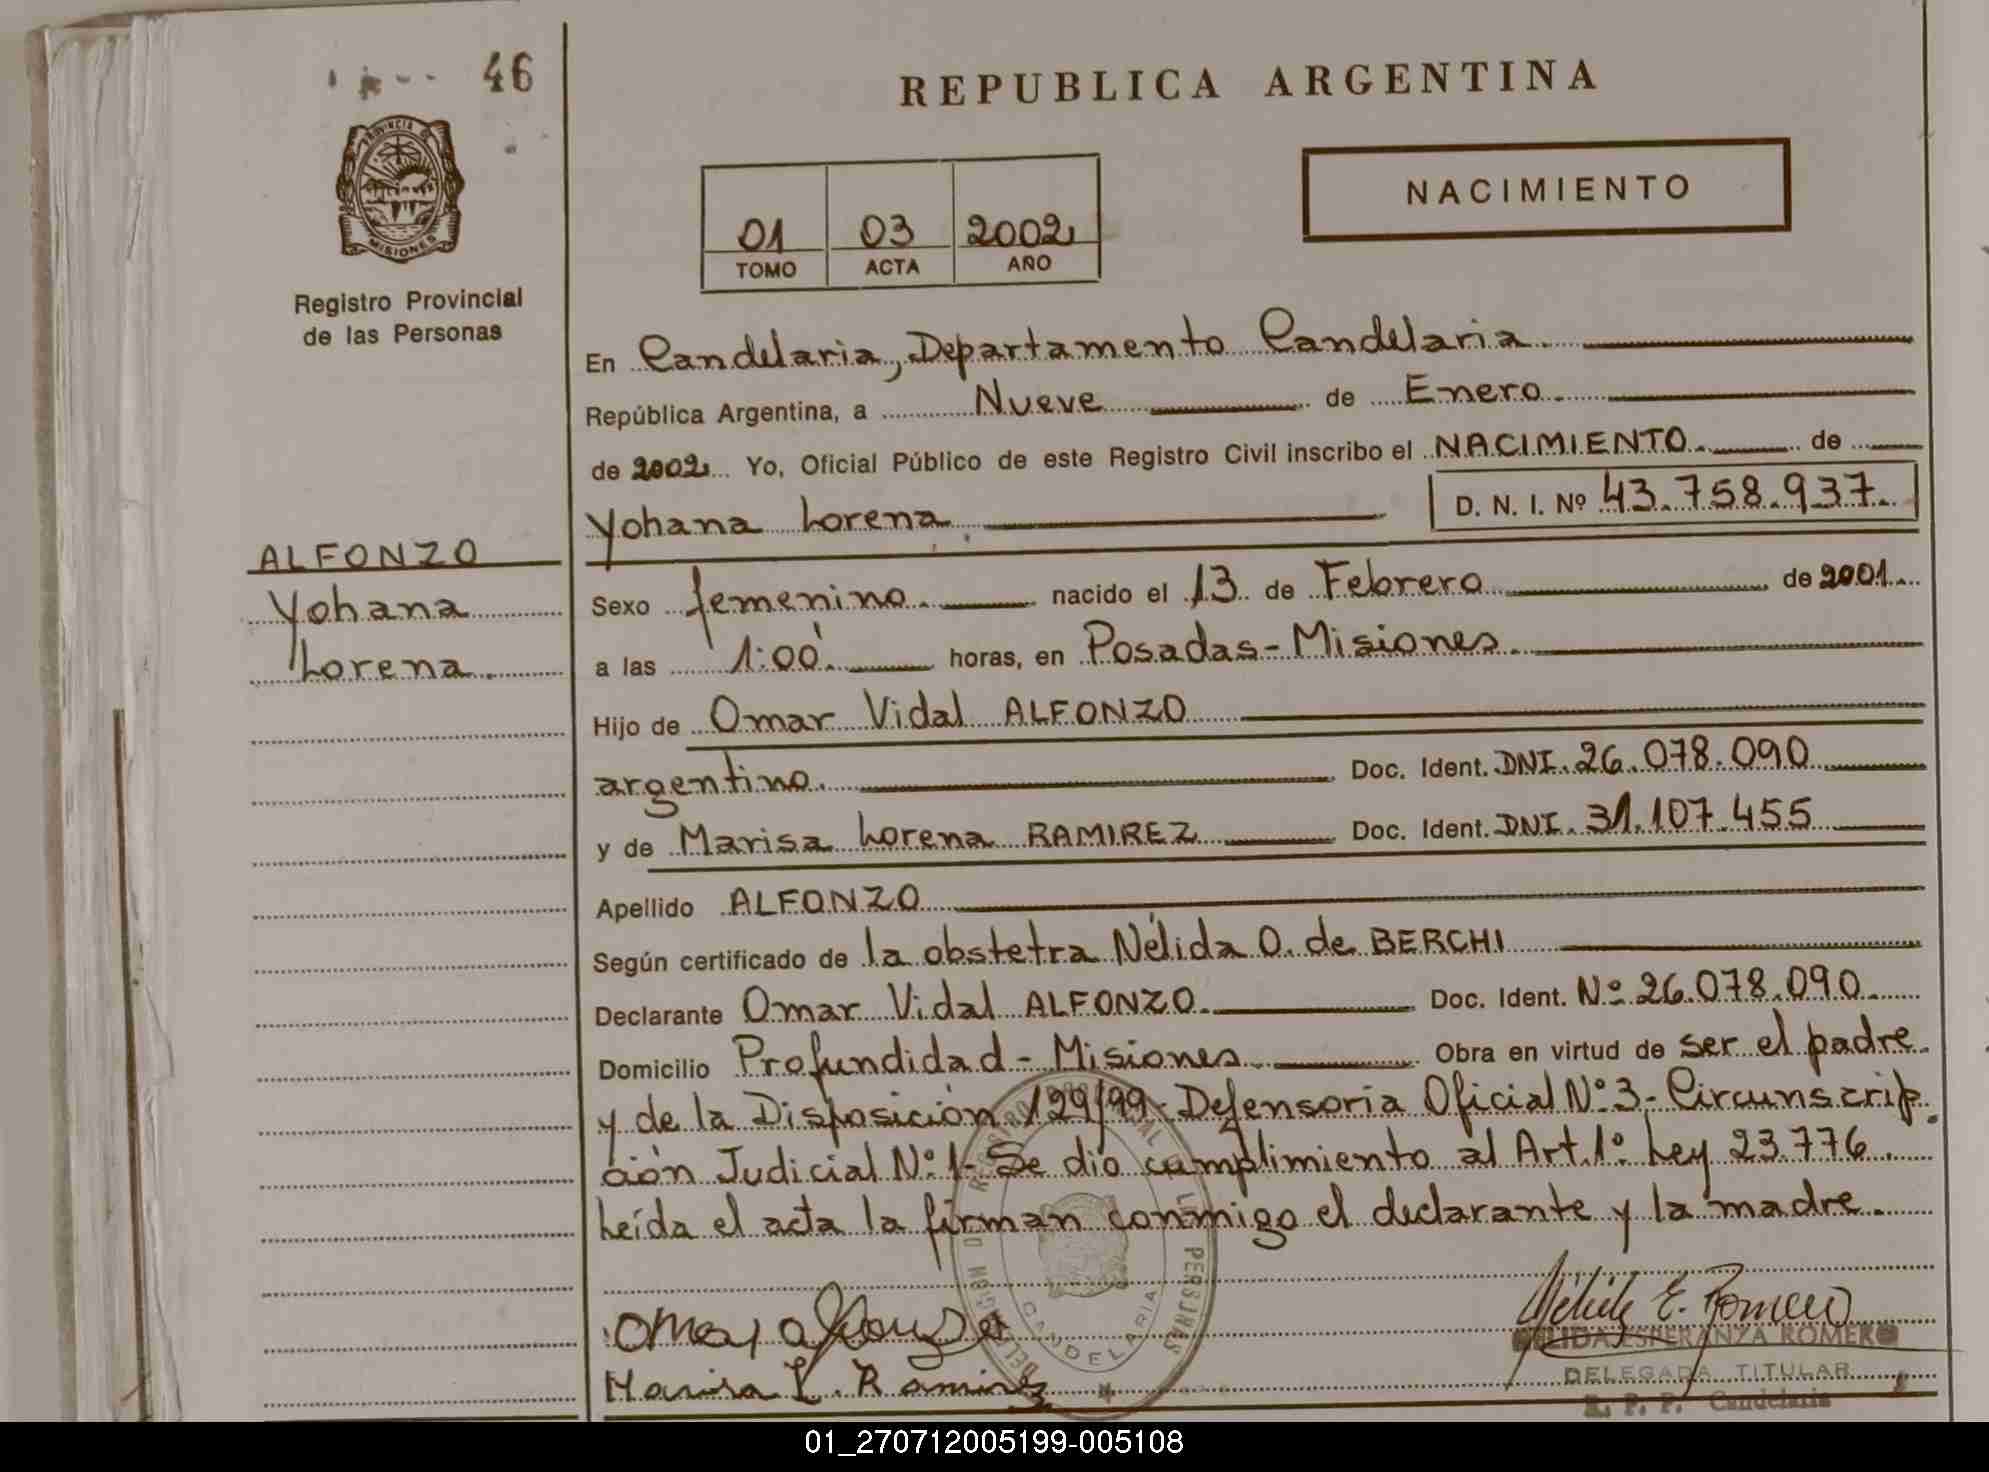 46
REPUBLICA ARGENTINA
PROVINCIA DE
MISIONES
Registro Provincial
de las Personas
01 03 2002
TOMO ACTA AÑO
NACIMIENTO
En Candelaria, Departamento Candelaria
República Argentina, a Nueve de Enero
de 2002 Yo, Oficial Público de este Registro Civil inscribo el NACIMIENTO de
Yohana Lorena D. N. I. Nº 43.758.937
ALFONZO
Yohana
Lorena
Sexo femenino. nacido el 13 de Febrero de 2001
a las 1:00 horas, en Posadas-Misiones.
Hijo de Omar Vidal ALFONZO
argentino. Doc. Ident. DNI. 26.078.090
y de Marisa Lorena RAMIREZ Doc. Ident. DNI. 31.107.455
Apellido ALFONZO
Según certificado de la obstetra Nélida O. de BERCHI
Declarante Omar Vidal ALFONZO. Doc. Ident. Nº 26.078.090
Domicilio Profundidad - Misiones. Obra en virtud de ser el padre
y de la Disposición 129/99- Defensoria Oficial Nº 3- Circunscrip
ción Judicial Nº 1- Se dio cumplimiento al Art. 1º Ley 23.776.
Leída el acta la firman conmigo el declarante y la madre.
CANDELARIA
Marisa L. Ramirez
E. Romero
ESPERANZA ROMERO
DELEGADA TITULAR
R. P. P. Candelaria
01_270712005199-005108